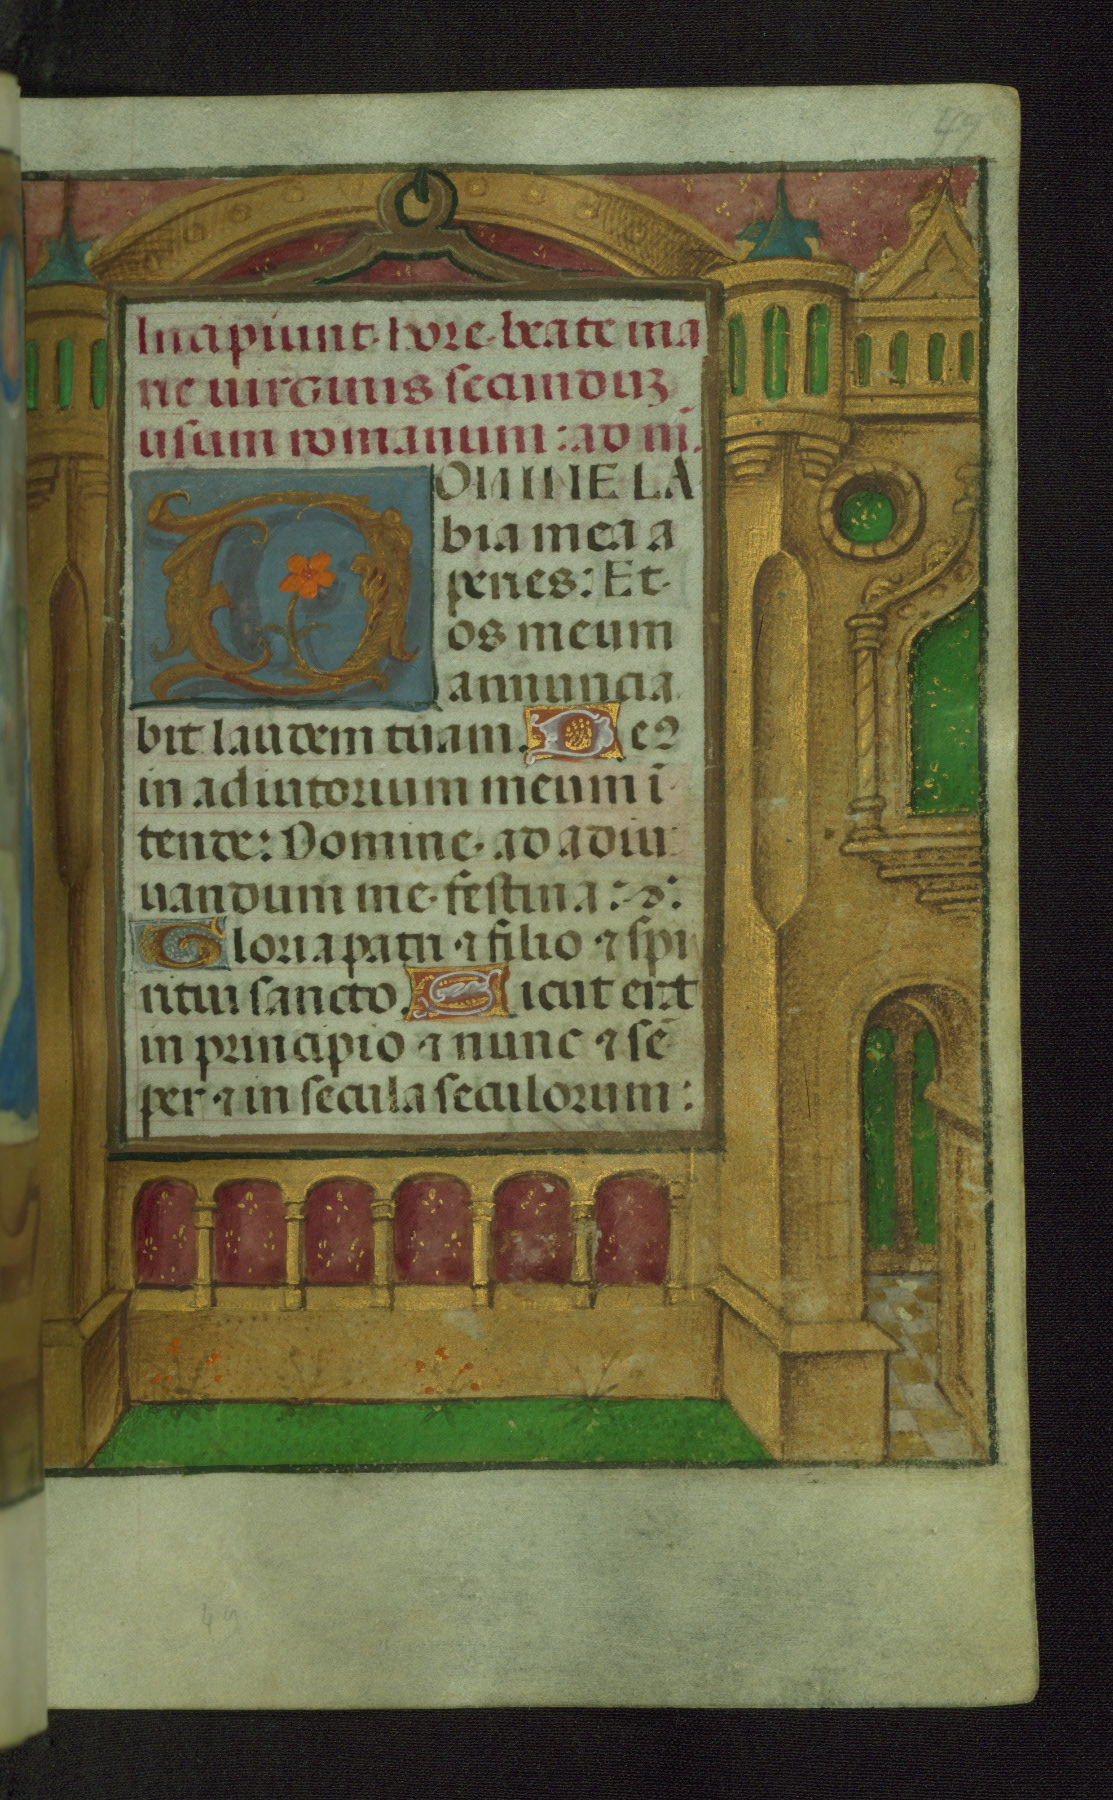 49
Incipiunt hore beate ma
rie uirginis secunduz
usum romanum : ad m̄.
DOMINE LA
bia mea a
peries: Et
os meum
annuncia
bit laudem tuam. De2
in adiutorium meum ī
tende: Domine ad adiu
uandum me festina :
Gloria patri ⁊ filio ⁊ spi
ritui sancto. Sicut erat
in principio ⁊ nunc ⁊ sē
per ⁊ in secula seculorum :
49